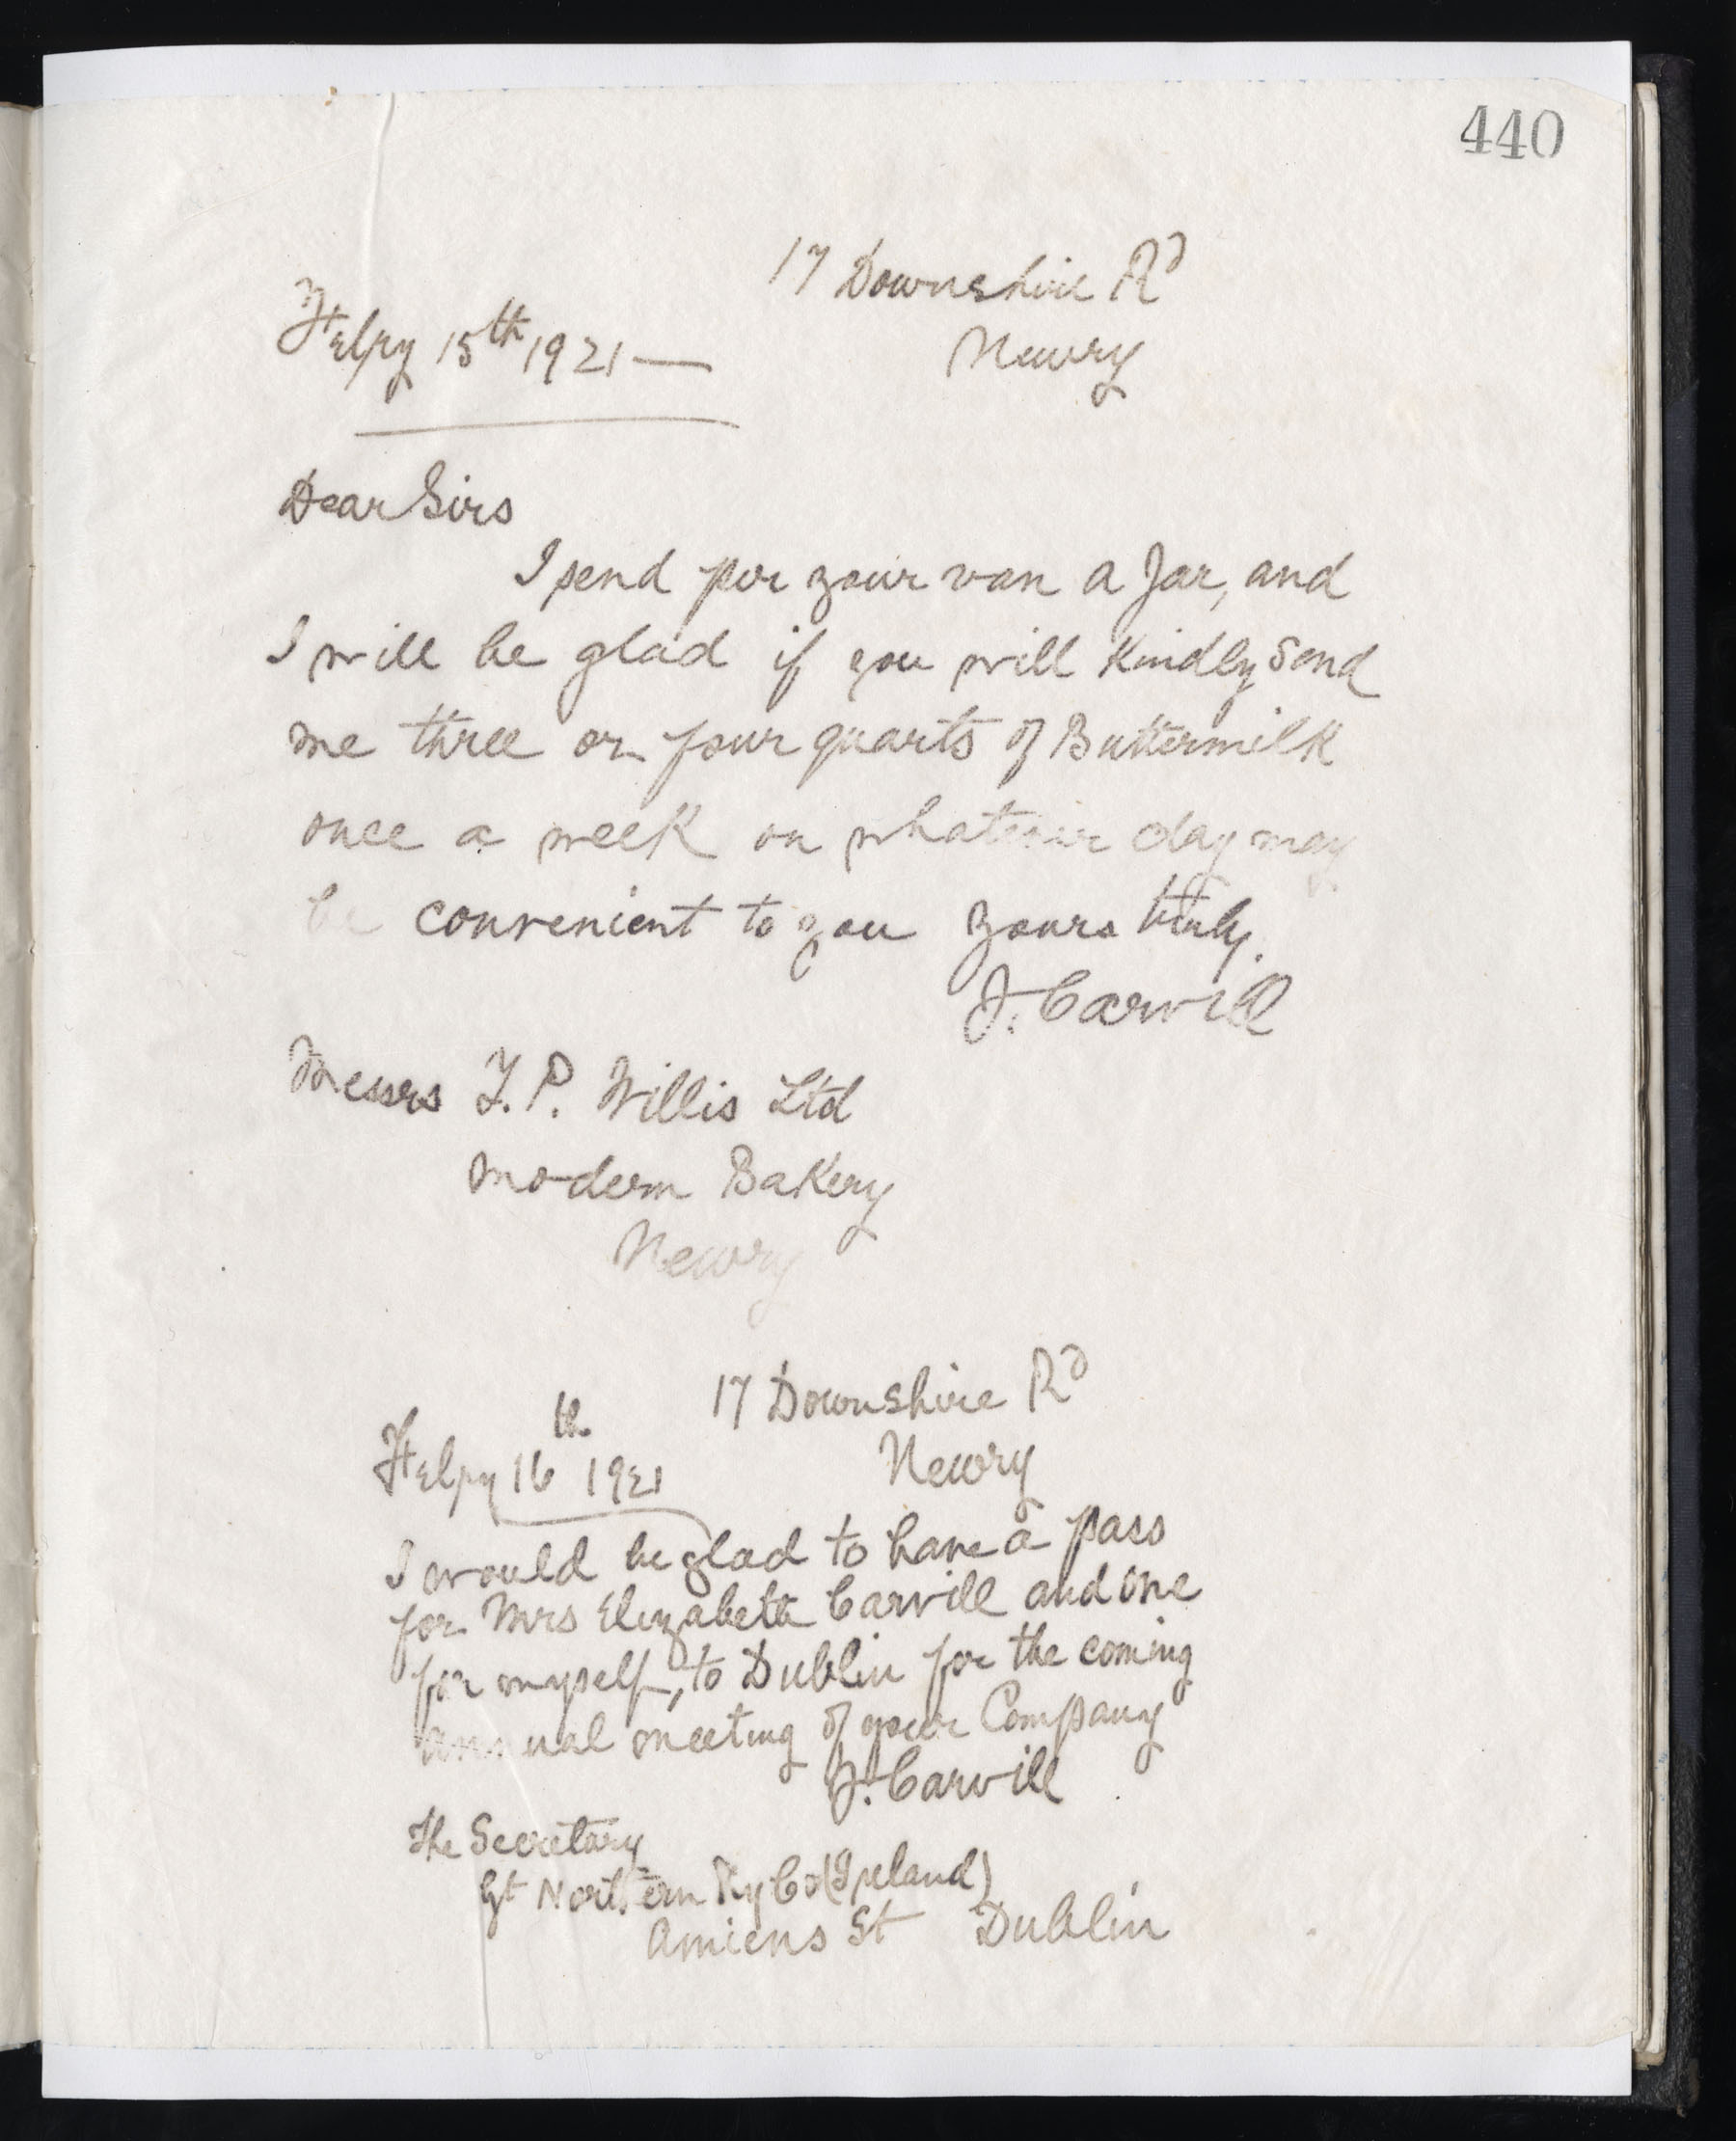 440
17 Downshire Rd
Newry
Febry 15th 1921
Dear Sirs
I send per your van a Jar, and
I will be glad if you will kindly send
me three or four quarts of Buttermilk
once a week on whatever day may
be convenient to you Yours truly.
J. Carvill
Messrs F. P. Willis Ltd
Modern Bakery
Newry
17 Downshire Rd
Newry
Febry 16th 1921
I would be glad to have a pass
for Mrs Elizabeth Carvill and one
for myself, to Dublin for the coming
annual meeting of your Company
J. Carvill
The Secretary
Gt Northern Ry Co (Ireland)
Amiens St Dublin